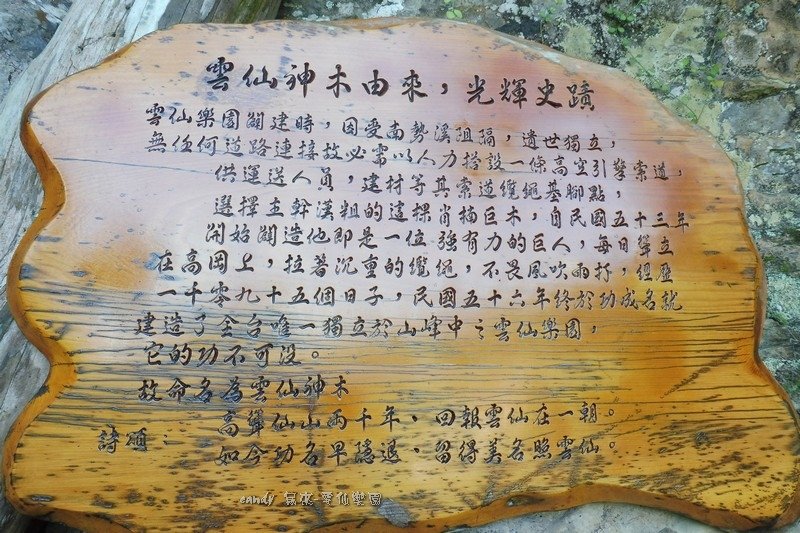 雲仙神木由來，光輝史蹟
雲仙樂園闢建時，因受南勢溪阻隔，遺世獨立，
無任何道路連接故必需以人力搭設一條高空引擎索道，
供運送人員，建材等其索道纜繩基腳點，
選擇主幹漢粗的這棵肖楠巨木，自民國五十三年
開始闢造他即是一位強有力的巨人，每日聳立
在高岡上，拉著沉重的纜繩，不畏風吹雨打，經歷
一千零九十五個日子，民國五十六年終於功成名就
建造了全台唯一獨立於山峰中之雲仙樂園，
它的功不可沒。
故命名為雲仙神木
高聳仙山兩千年、回報雲仙在一朝。
詩頌：
如今功名早隱退、留得美名照雲仙。
candy 烏來 雲仙樂園